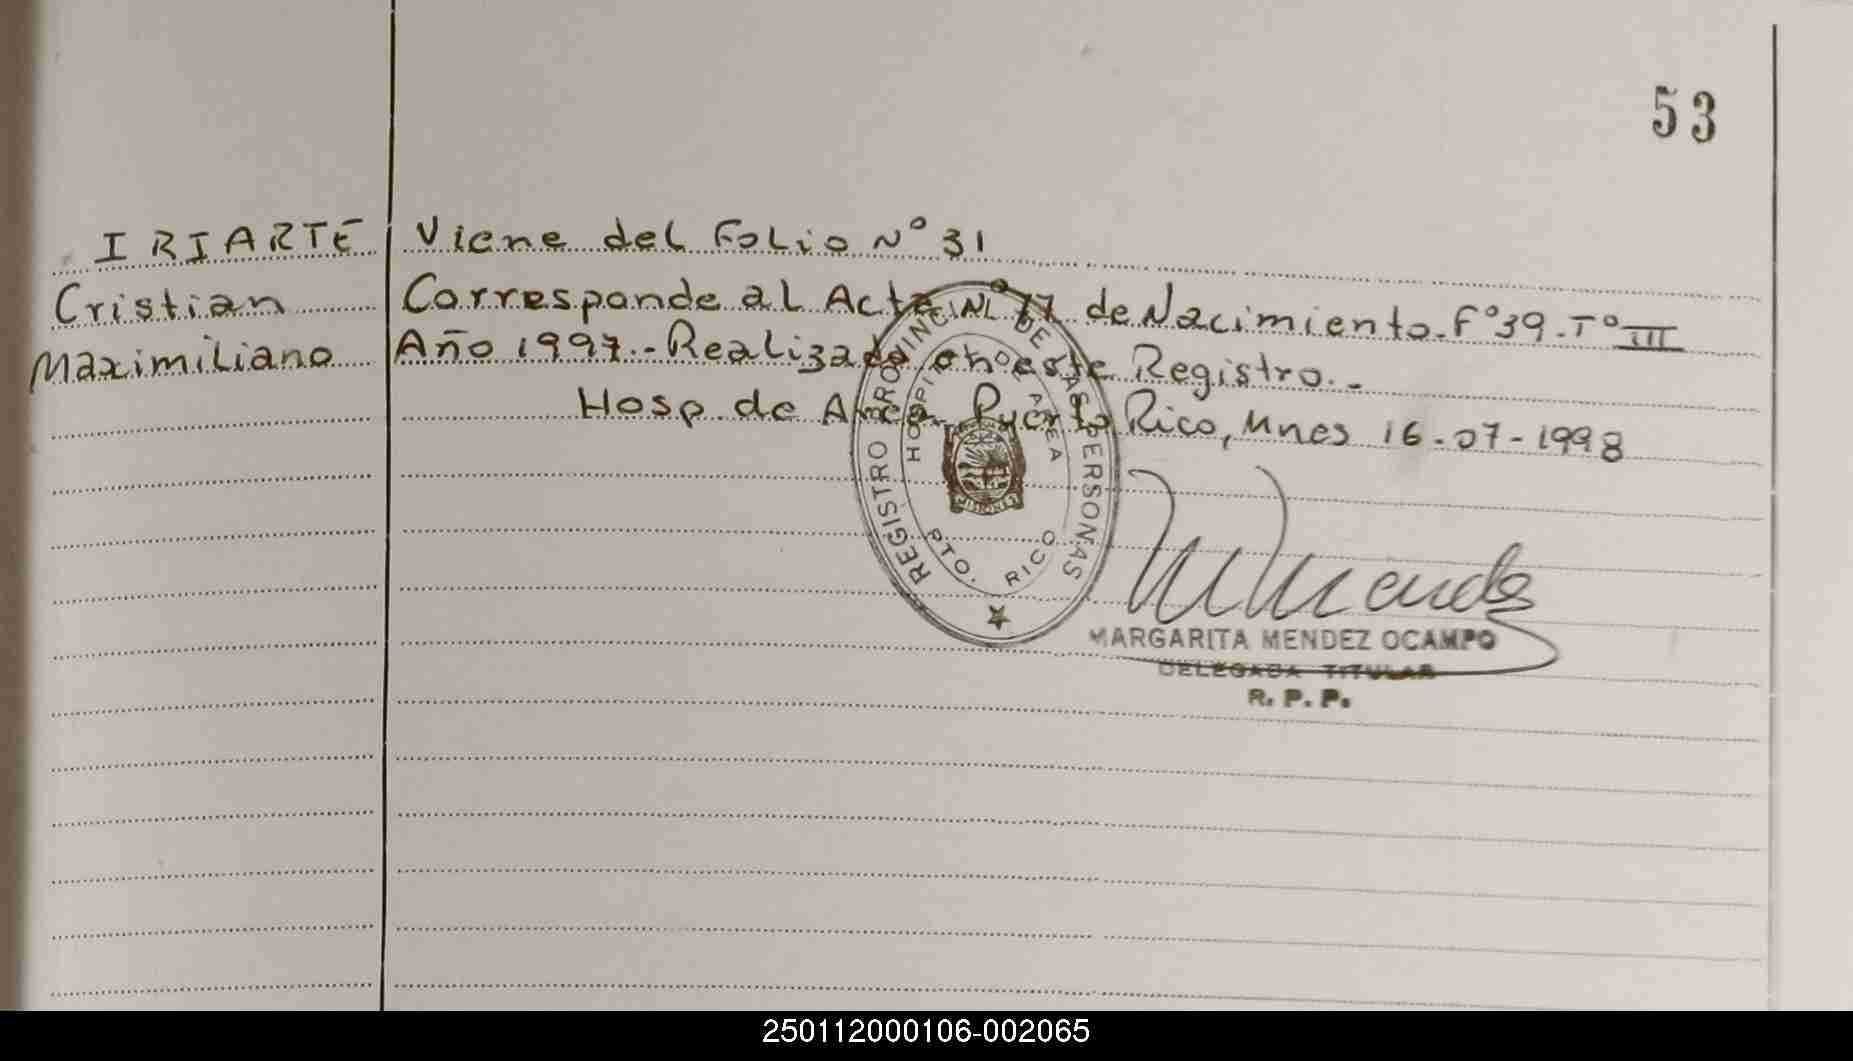 53
IRIARTE
Cristian
Maximiliano
Viene del Folio N° 31
Corresponde al Acta N° 77 de Nacimiento. F° 39. T° III
Año 1997.- Realizado en este Registro.-
Hosp de Area Puerto Rico, Mnes 16-07-1998
REGISTRO PROVINCIAL DE LAS PERSONAS
HOSPITAL DE AREA
PTO. RICO
MISIONES
MMendez
MARGARITA MENDEZ OCAMPO
DELEGADA TITULAR
R. P. P.
250112000106-002065